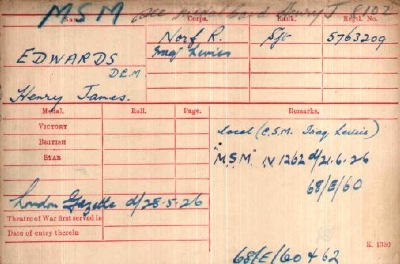 MSM see medal card Henry J
Name. Corps. Rank. Regtl. No.
EDWARDS Norf R. Sjt 5763209
D.E.M. Iraq Levies
Henry James.
Medal. Roll. Page. Remarks.
VICTORY
BRITISH
STAR
local (C.S.M. Iraq Levies)
"M.S.M" N 1262 d/21.6.26
68/E/60
London Gazette d/28.5.26
Theatre of War first served in
Date of entry therein
K. 1380
68/E/60 + 62